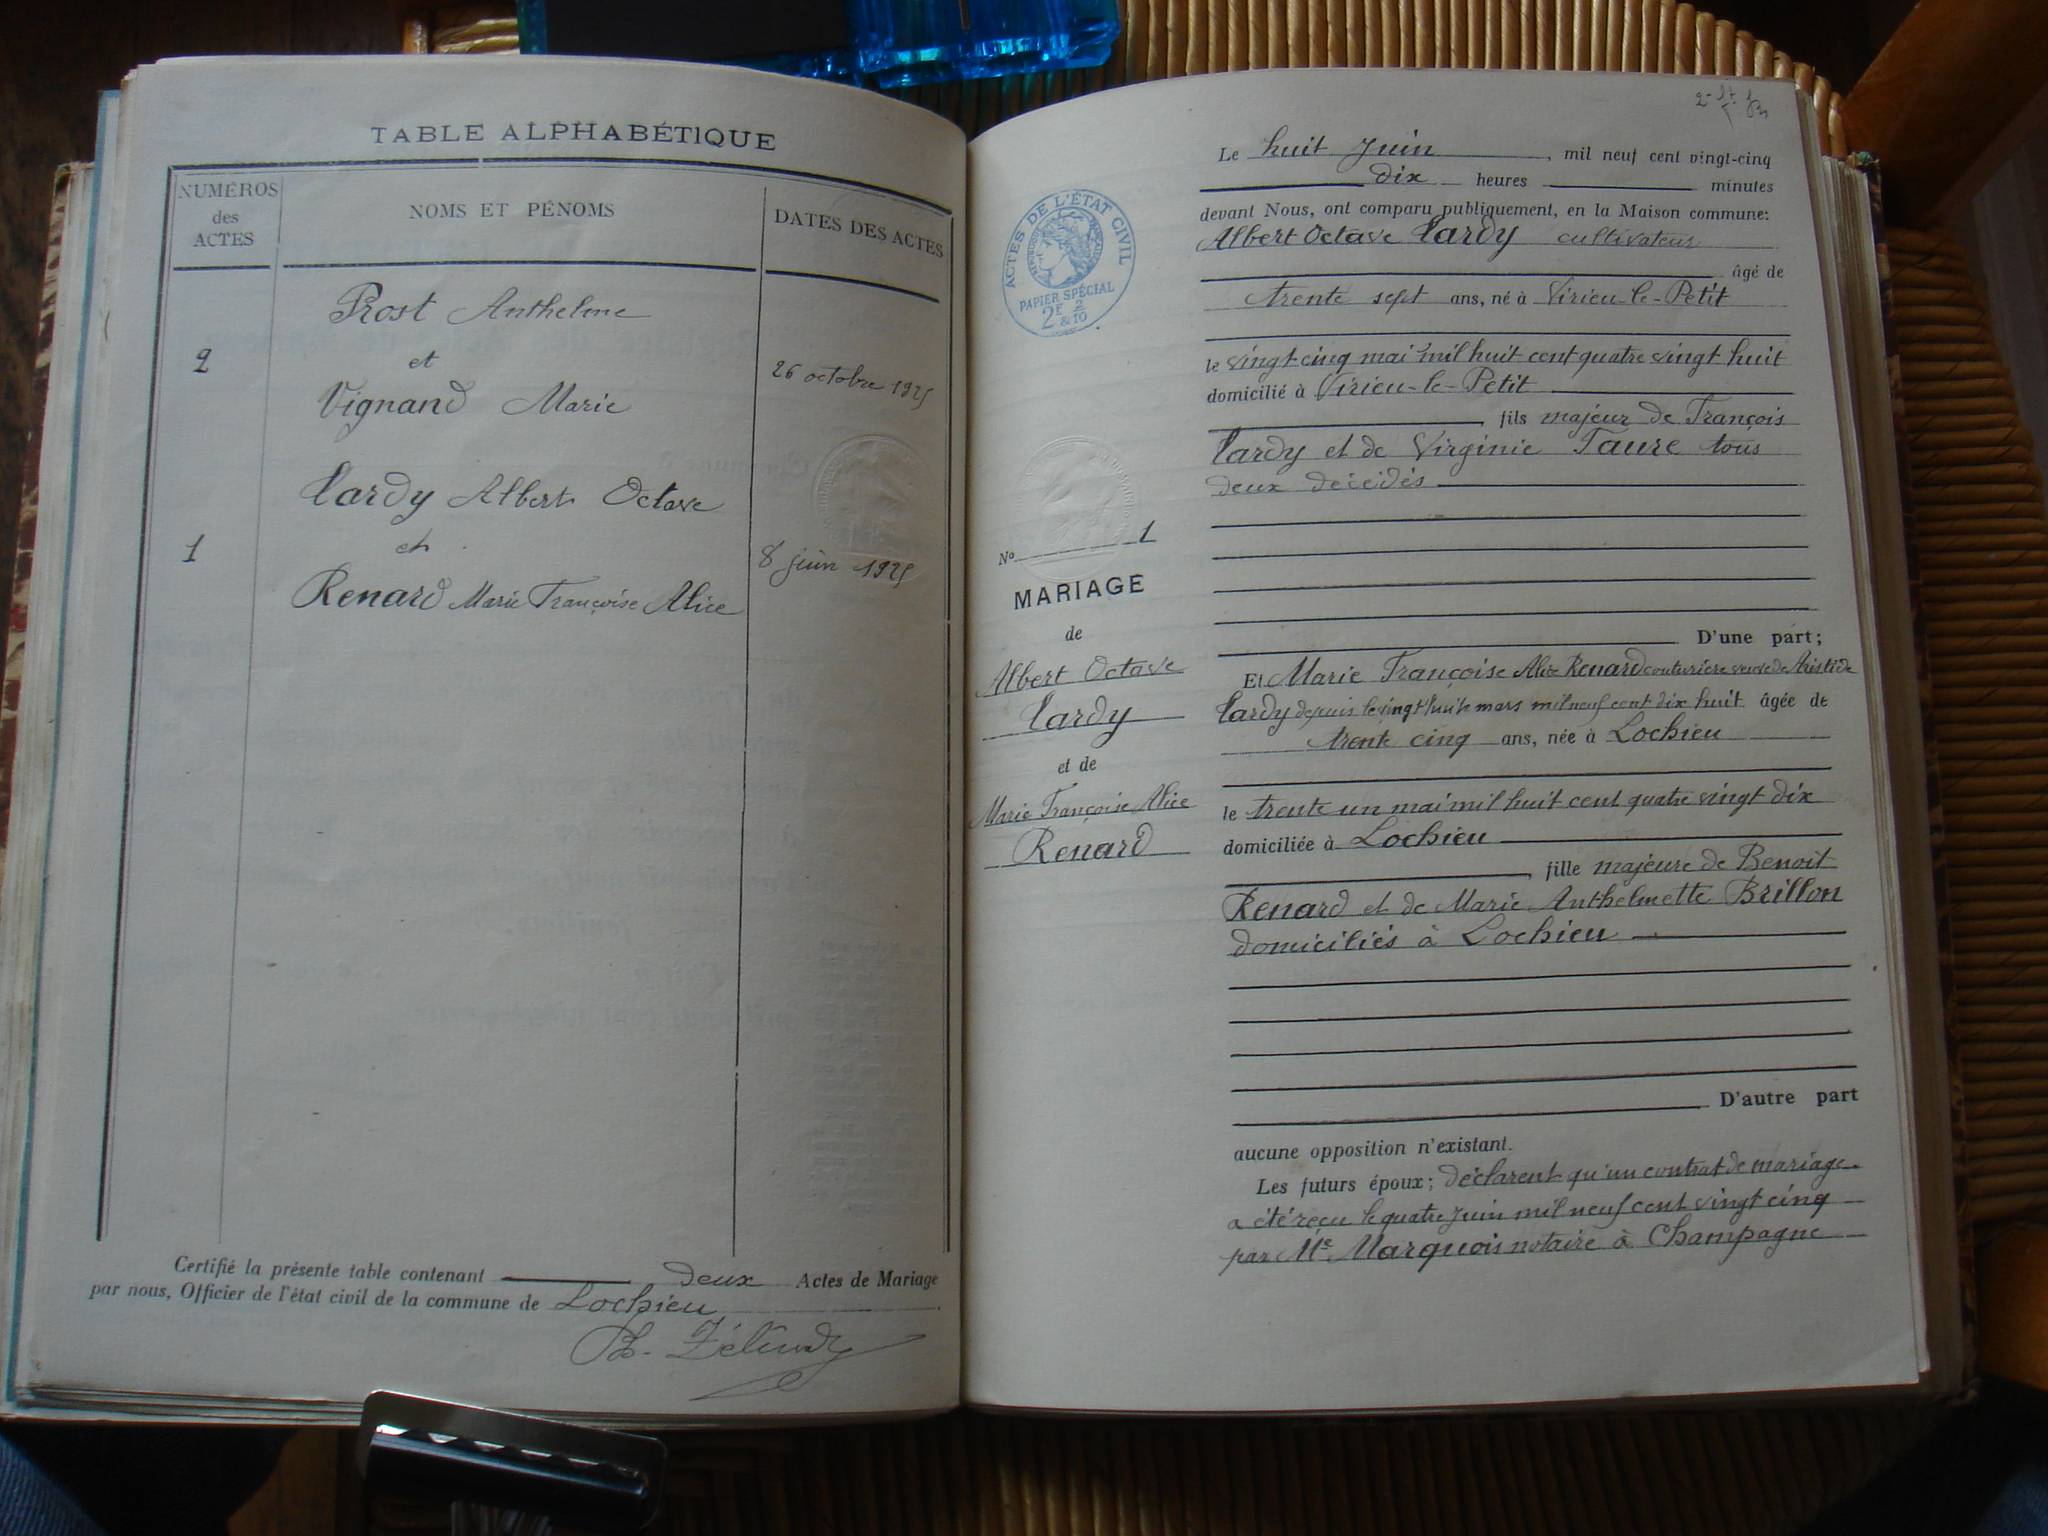 TABLE ALPHABÉTIQUE
NUMÉROS
des
ACTES
NOMS ET PÉNOMS
DATES DES ACTES
Prost Anthelme
2
et
26 octobre 1925
Vignand Marie
Tardy Albert Octave
1
et
8 juin 1925
Renard Marie Françoise Alice
Certifié la présente table contenant deux Actes de Mariage
par nous, Officier de l'état civil de la commune de Lochieu
ACTES DE L'ÉTAT CIVIL
PAPIER SPÉCIAL
2E 2
& 10
No 1
MARIAGE
de
Albert Octave
Tardy
et de
Marie Françoise Alice
Renard
Le huit Juin, mil neuf cent vingt-cinq
dix heures minutes
devant Nous, ont comparu publiquement, en la Maison commune:
Albert Octave Tardy cultivateur
âgé de
trente sept ans, né à Virieu-le-Petit
le vingt cinq mai mil huit cent quatre vingt huit
domicilié à Virieu-le-Petit
fils majeur de François
Tardy et de Virginie Taure tous
deux décédés
D'une part;
Et Marie Françoise Alice Renard couturière veuve de Aristide
Tardy depuis le vingt huit mars mil neuf cent dix huit âgée de
trente cinq ans, née à Lochieu
le trente un mai mil huit cent quatre vingt dix
domiciliée à Lochieu
fille majeure de Benoit
Renard et de Marie Anthelmette Brillon
domiciliés à Lochieu
D'autre part
aucune opposition n'existant.
Les futurs époux; déclarent qu'un contrat de mariage
a été reçu le quatre Juin mil neuf cent vingt cinq
par Me Marquois notaire à Champagne